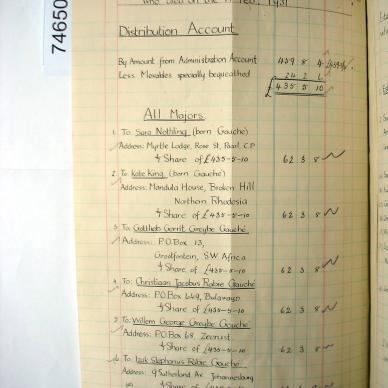 74650
who died on the 11 Feb. 1931
Distribution Account
By Amount from Administration Account 459 8 4
Less Movables specially bequeathed 24 2 6
£ 435 5 10
All Majors
1. To: Sara Nothling (born Gauché)
Address: Myrtle Lodge, Rose St, Paarl, C.P.
1/7 Share of £435-5-10 62 3 8
2. To Kate King (born Gauché)
Address: Mandula House, Broken Hill
Northern Rhodesia
1/7 Share of £435-5-10 62 3 8
3. To: Gottlieb Gerrit Greybe Gauché
Address: P.O. Box 13,
Grootfontein, S.W. Africa
1/7 Share of £435-5-10 62 3 8
4. To: Christiaan Jacobus Rabie Gauché
Address: P.O Box 649, Bulawayo
1/7 Share of £435-5-10 62 3 8
5. To: Willem George Greybe Gauché
Address: P.O. Box 69, Zeerust
1/7 Share of £435-5-10 62 3 8
6. To: Izak Stephanus Rabie Gauché
Address: 9 Sutherland Ave Johannesburg
62 3 8